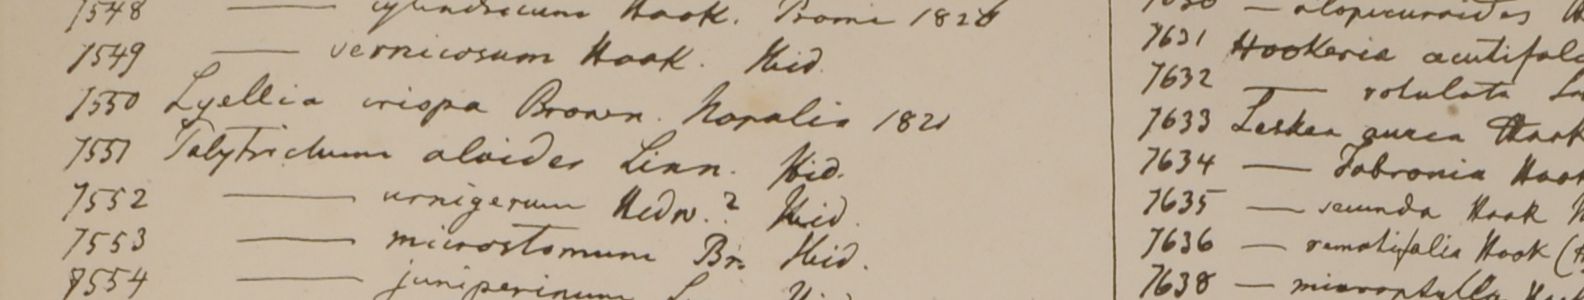 7548 —— cylindricum Hook. Promi 1826
7549 —— vernicosum Hook. Ibid.
7550 Lyellia crispa Brown. Napalia 1821
7551 Polytrichum aloides Linn. Ibid.
7552 —— urnigerum Hedw.? Ibid.
7553 —— microstomum Br. Ibid.
7554 —— juniperinum
— alopecuroides
7631 Hookeria acutifol
7632 —— rotulata
7633 Leskea aurea Hook
7634 — Fabronia Hook
7635 — secunda Hook
7636 — ramotifolia Hook
7638 — microphylla